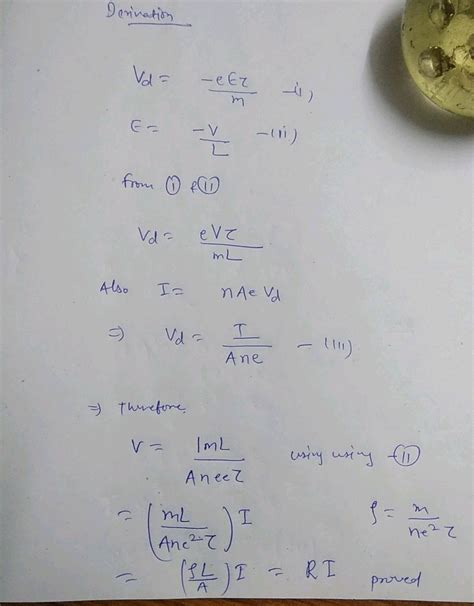 Derivation
Vd = -eEτ/m -(i)
E = -V/L -(ii)
from (i) & (ii)
Vd = eVτ/mL
Also I = nAe Vd
⇒ Vd = I/Ane - (III)
⇒ Therefore,
V = ImL/Aneeτ using using -(ii)
= (mL/Ane²τ) I ρ = m/ne²τ
= (ρL/A) I = RI proved